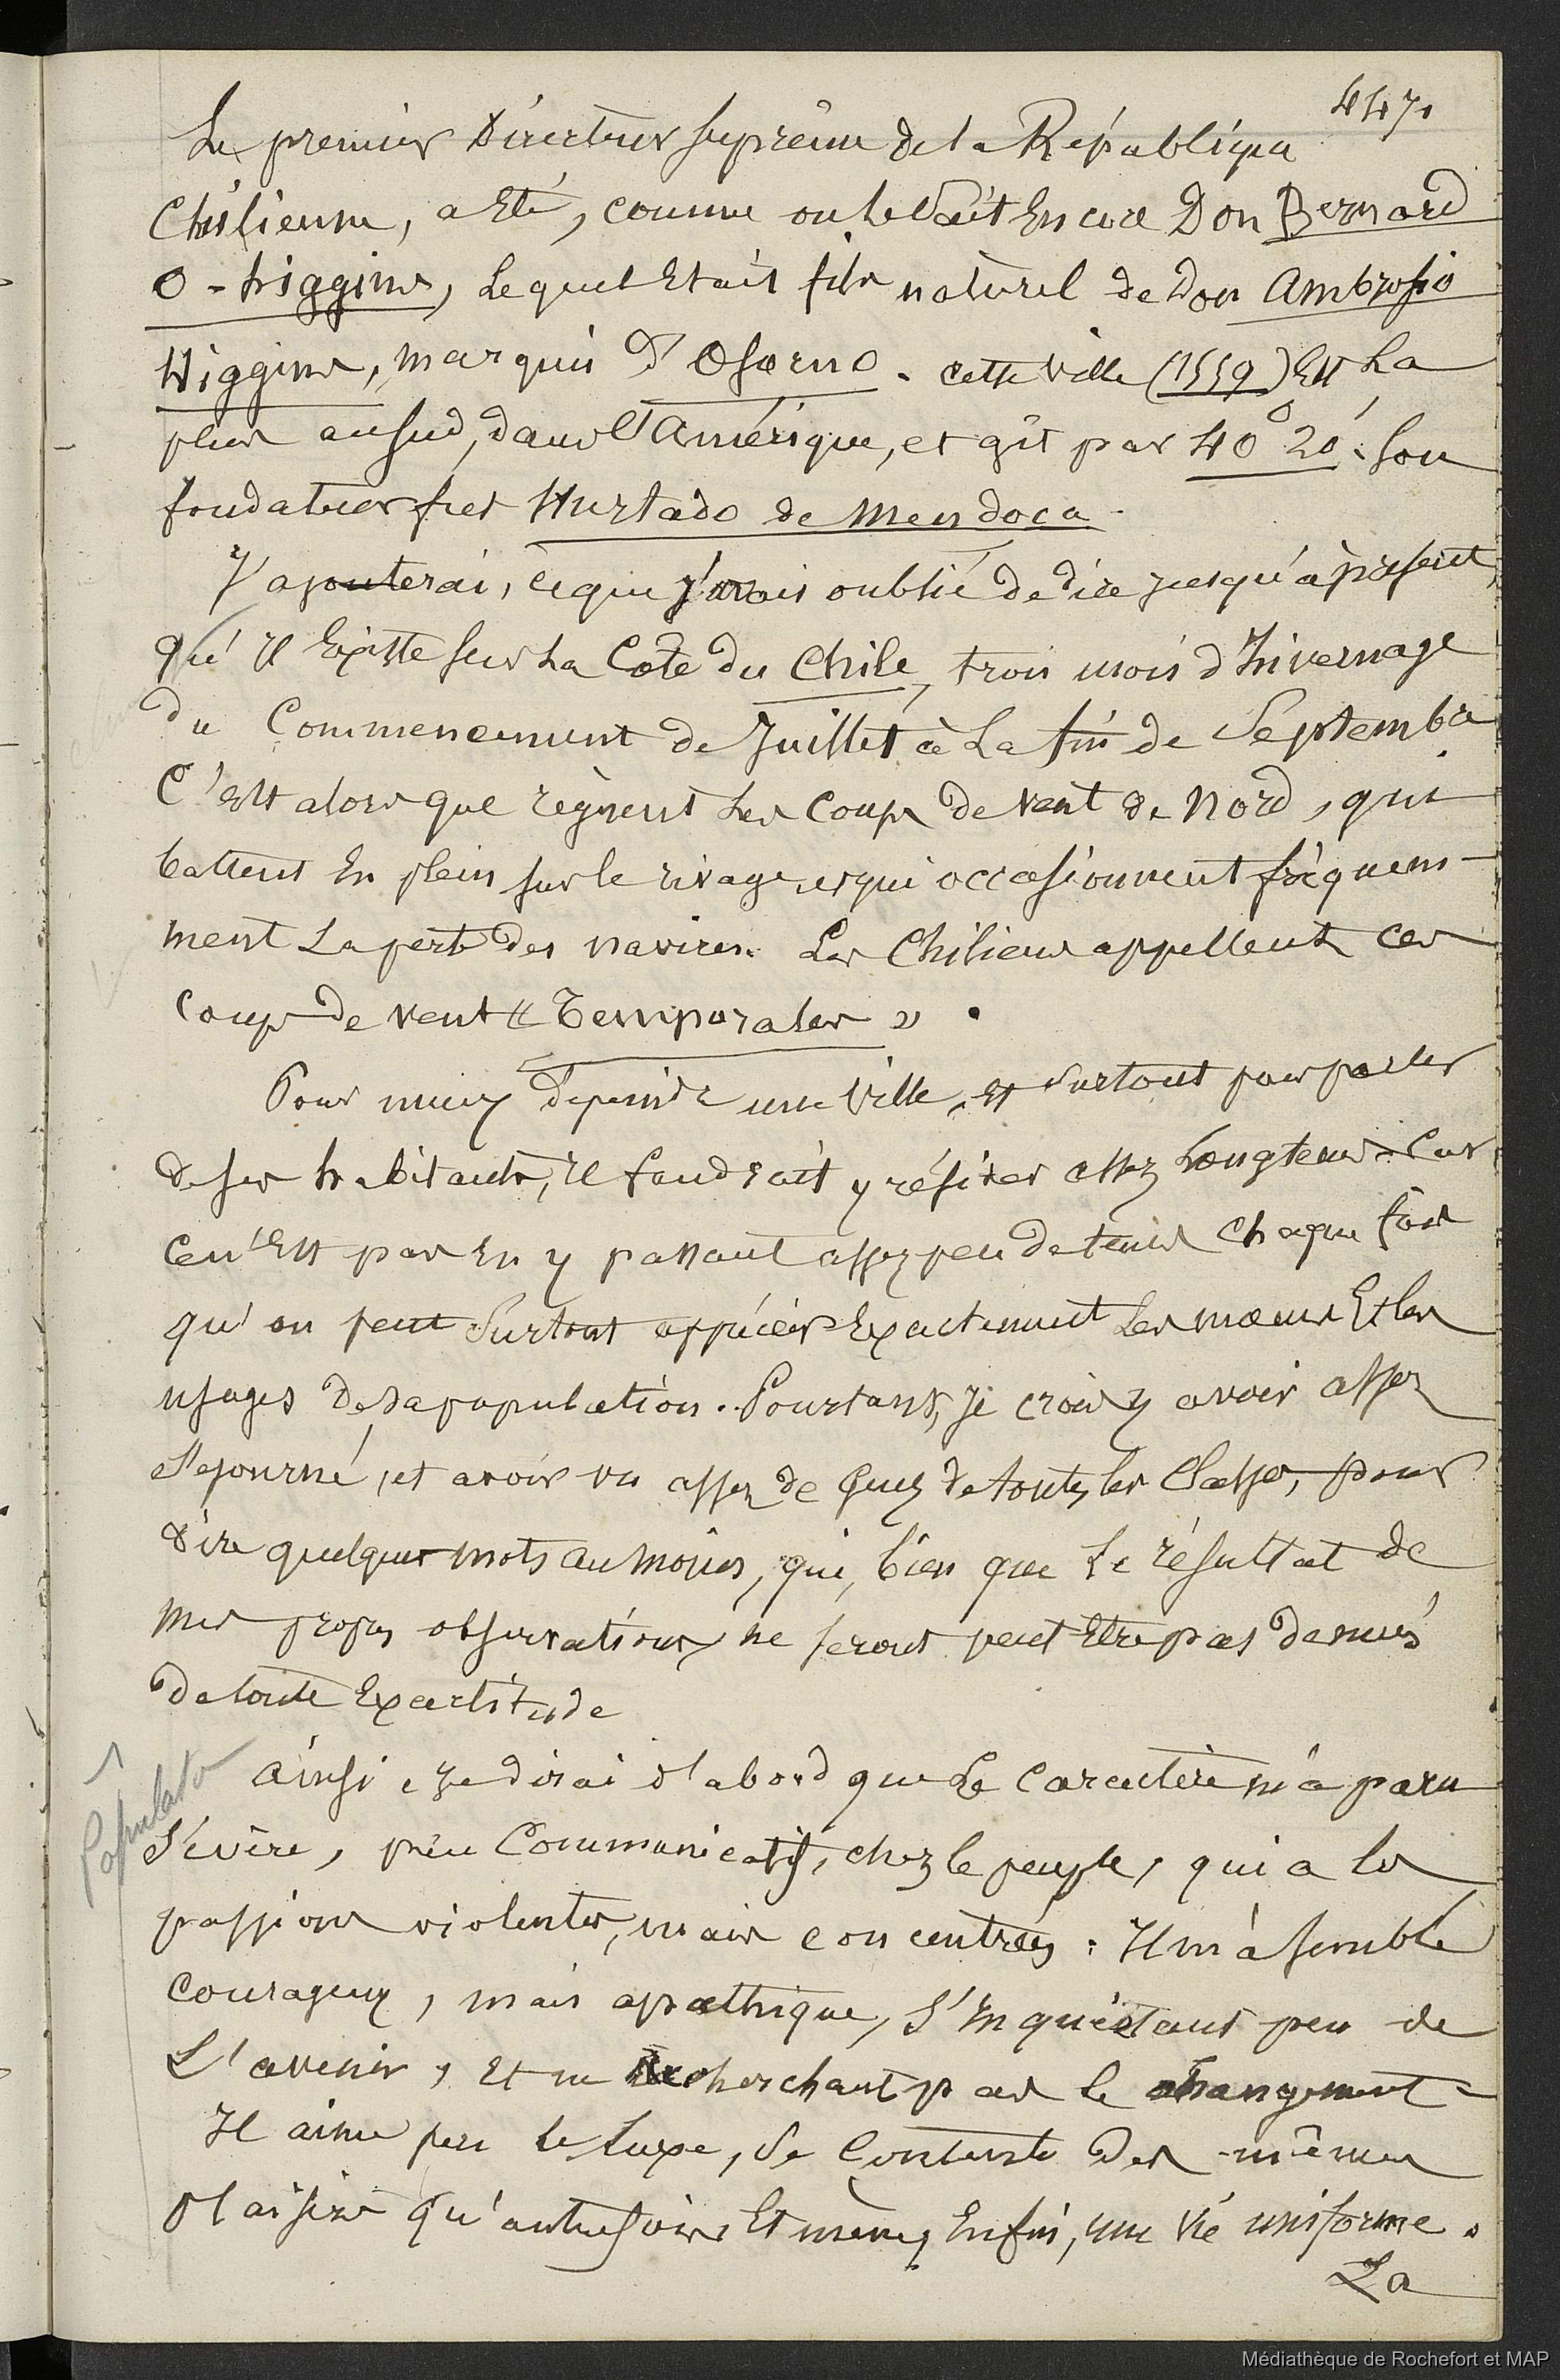 447.
Le premier Directeur suprême de la République
Chilienne, a été, comme on le sait encore Don Bernard
O-higgins, lequel était fils naturel de Don Ambrosio
Higgins, marquis d'Osorno. cette ville (1559) est la
plus au sud, dans l'Amérique, et gît par 40° 20'. Son
fondateur fut Hurtado de Mendoca.
J'ajouterai, ce que j'avais oublié de dire jusqu'à présent,
qu'il existe sur la Cote du Chile, trois mois d'hivernage
du Commencement de Juillet à la fin de Septembre
C'est alors que règnent les coups de vent de Nord, qui
battent en plein sur le rivage et qui occasionnent fréquem-
ment la perte des navires. Les Chiliens appellent ces
coups de vent « Temporales ».
Pour mieux dépeindre une ville, et surtout pour parler
de ses habitants, il faudrait y résider assez longtems. Car
ce n'est pas en y passant assez peu de tems chaque fois
qu'on peut surtout apprécier exactement les moeurs et les
usages de sa population. Pourtant, je crois y avoir assez
séjourné, et avoir vu assez de gens de toutes les classes, pour
dire quelques mots au moins, qui, bien que le résultat de
mes propres observations, ne seront peut être pas denués
de toute exactitude
Populato
Ainsi, je dirai d'abord que le caractère m'a paru
sévère, peu communicatif, chez le peuple, qui a les
passions violentes, mais concentrées: Il m'a semblé
courageux, mais apathique, s'inquiétant peu de
l'avenir, et ne recherchant pas le changement.
Il aime peu le luxe, se contente des mêmes
plaisirs qu'autrefois et mène, enfin, une vie uniforme.
La
Médiathèque de Rochefort et MAP